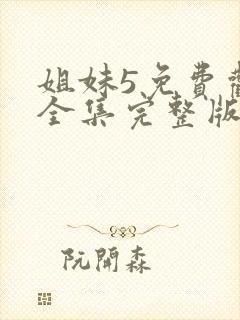 姐妹5免費
全集完整版
阮開森